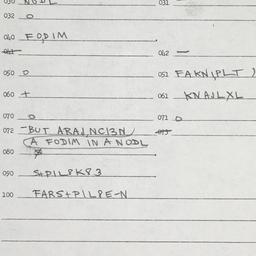 030 NODL 031
032 O
040 FODIM
041 042 —
050 O 051 FAKNIPLT )
060 + 061 KNAJLXL
070 O 071 O
072 -BUT ARAJ, NCI3N 073
(A FODIM IN A NODL
080
090 S+PILPK83
100 FARS+PILPE-N